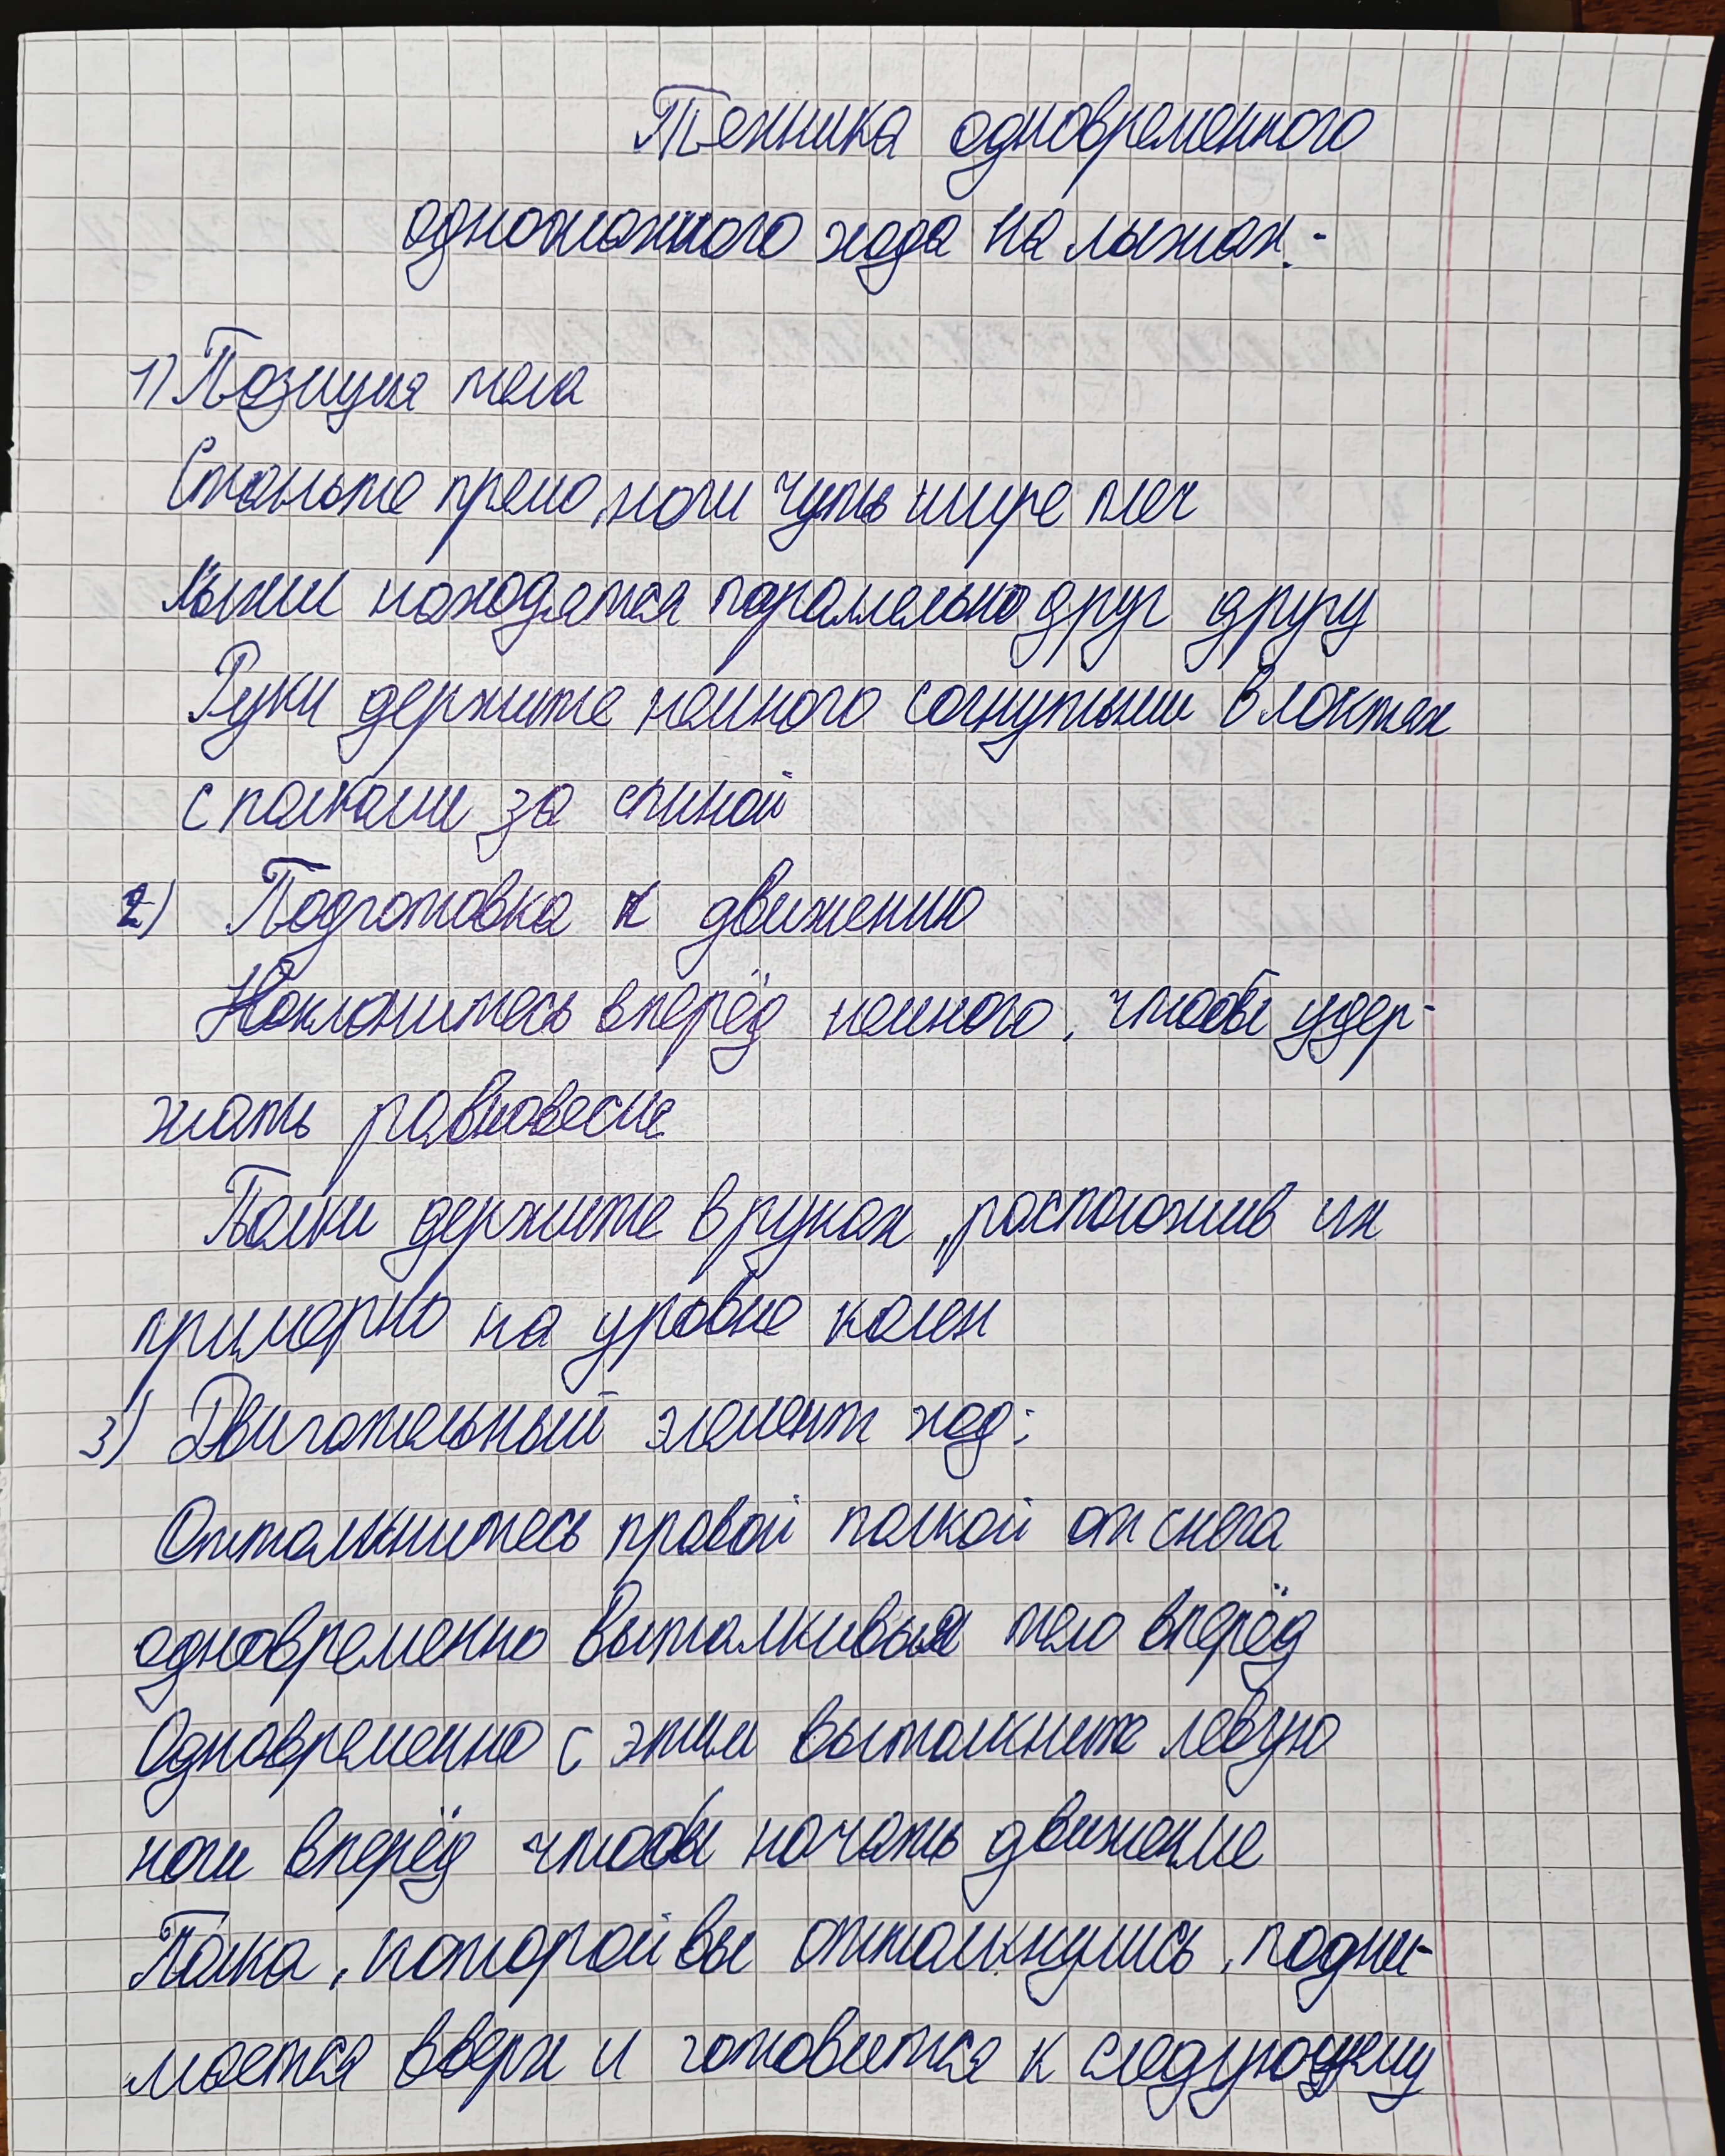 Техника одновременного
одношажного хода на лыжах:
1) Позиция тела
Станьте прямо, ноги чуть шире плеч
лыжи находятся параллельно друг другу
Руки держите немного согнутыми в локтях
с палками за спиной
2) Подготовка к движению
Наклонитесь вперёд немного, чтобы удер-
жать равновесие
Палки держите в руках, расположив их
примерно на уровне колен
3) Двигательный элемент ход:
Оттолкнитесь правой палкой от снега
одновременно выталкивая тело вперёд
Одновременно с этим вытолкните левую
ноги вперёд чтобы начать движение
Палка, которой вы оттолкнулись, подни-
мается вверх и готовится к следующему